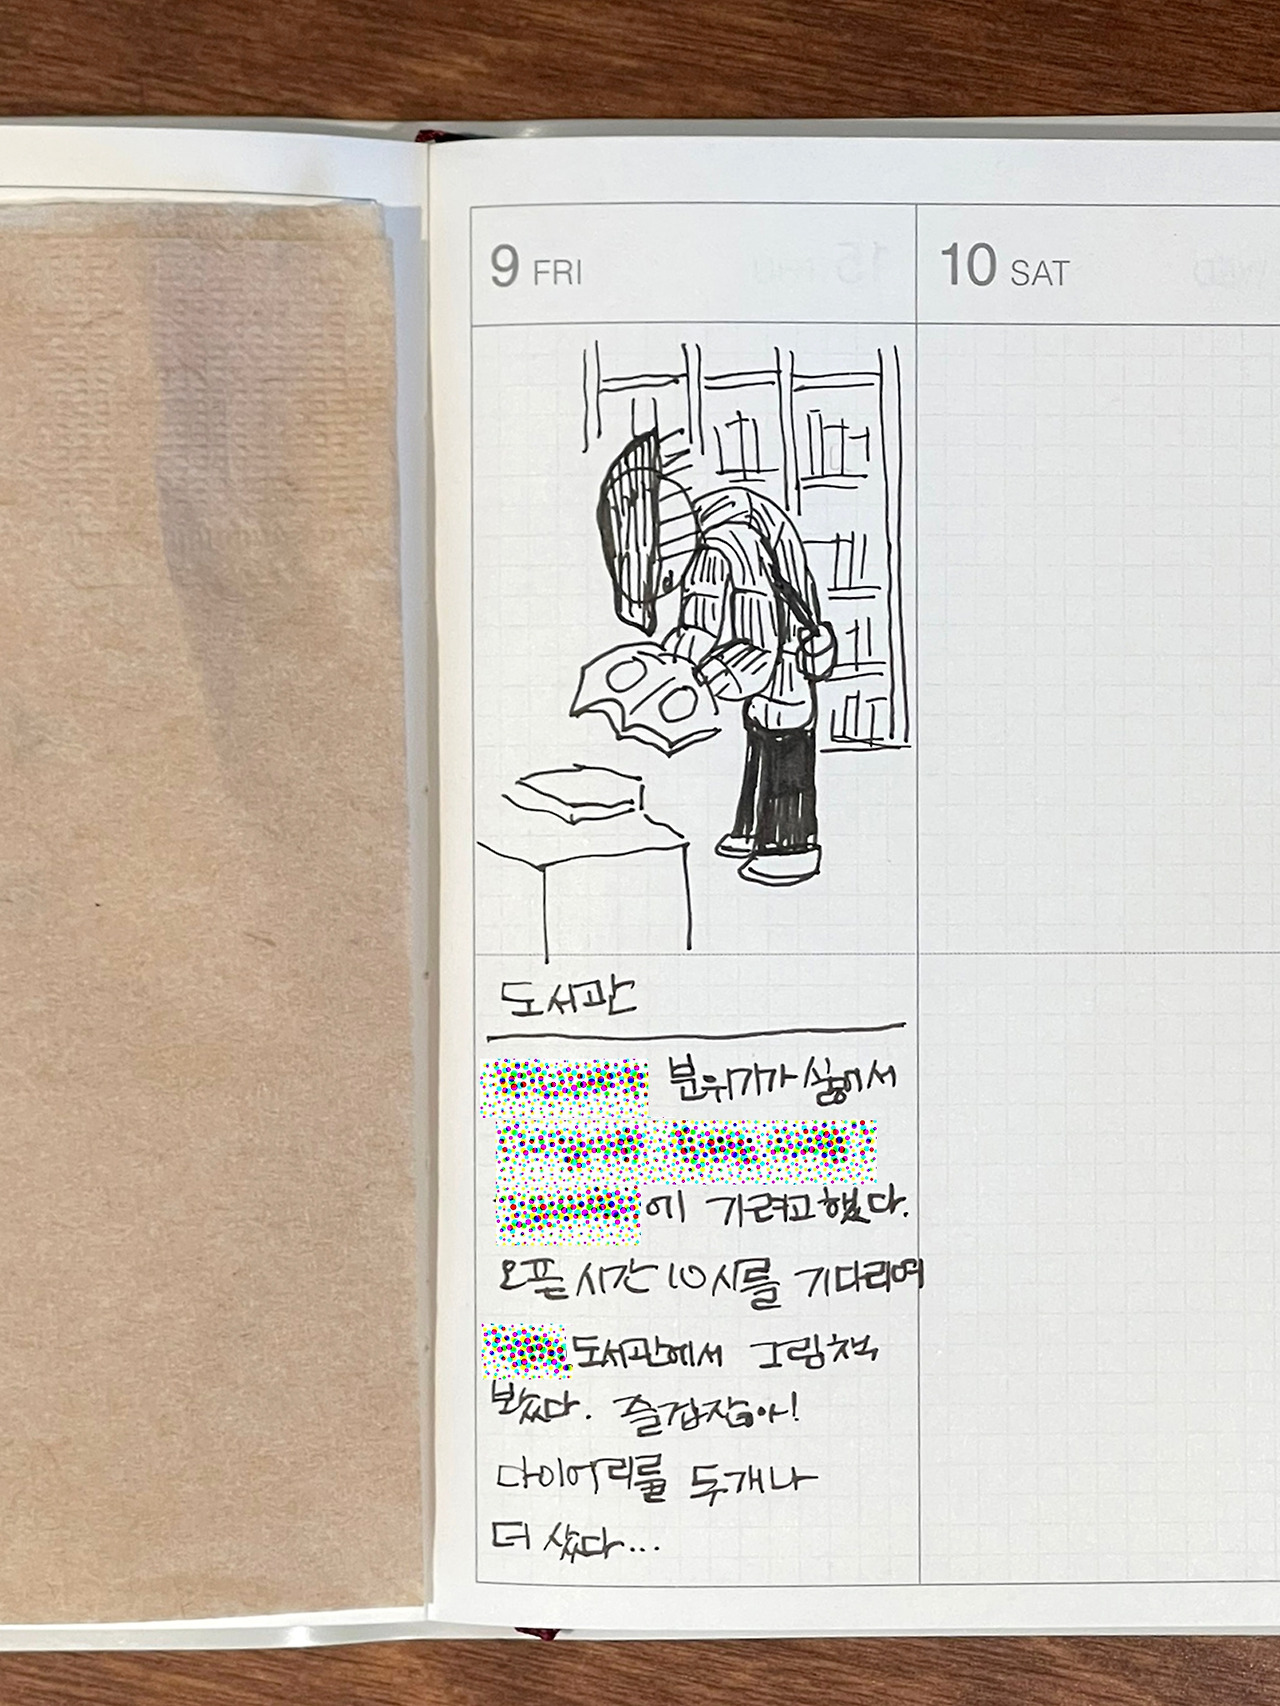 9 FRI
10 SAT
도서관
분위기가 싫어서
에 가려고 했다.
오픈 시간 10시를 기다리며
도서관에서 그림책
봤다. 즐겁잖아!
다이어리를 두개나
더 샀다...